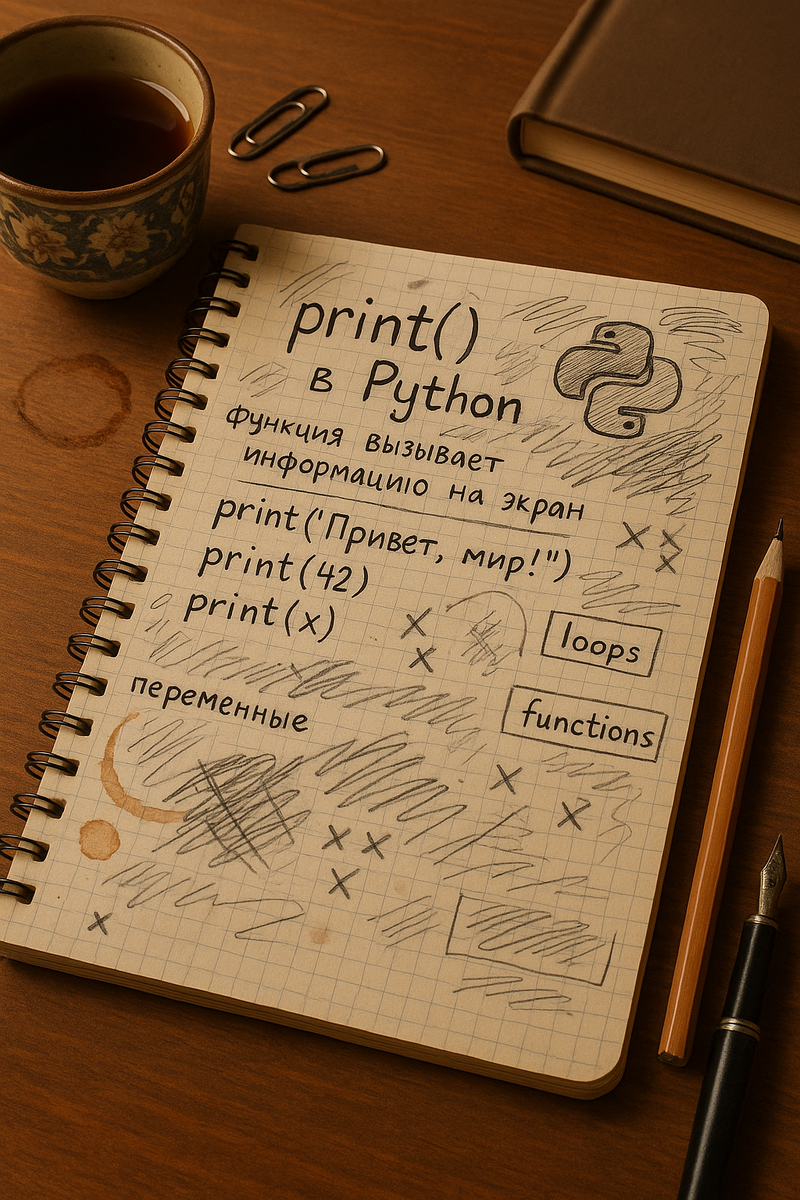 print()
в Python
функция вызывает
информацию на экран
print('Привет, мир!")
print(42)
print(x)
loops
переменные
functions